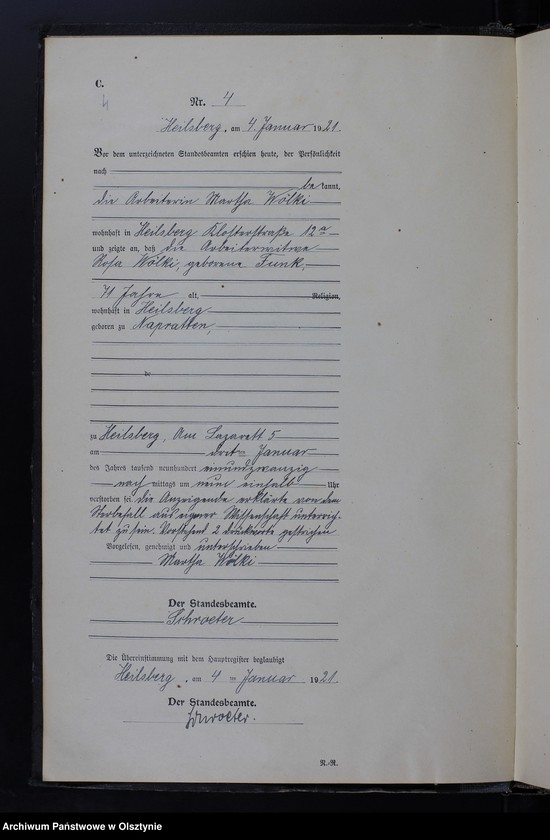 C.
4
Nr. 4
Heilsberg, am 4. Januar 1921.
Vor dem unterzeichneten Standesbeamten erschien heute, der Persönlichkeit
nach
bekannt,
die Arbeiterin Martha Wölki
wohnhaft in Heilsberg Klosterstraße 12a
und zeigte an, daß die Arbeiterwitwe
Rosa Wölki, geborene Funk,
71 Jahre alt, Religion,
wohnhaft in Heilsberg
geboren zu Napratten,
de
zu Heilsberg, Am Lazarett 5
am dritten Januar
des Jahres tausend neunhundert einundzwanzig
nach mittags um neun einhalb Uhr
verstorben sei. die Anzeigende erklärte von dem
Sterbefall aus eigener Wissenschaft unterrich-
tet zu sein. Vorstehend 2 Druckworte gestrichen
Vorgelesen, genehmigt und unterschrieben
Martha Wölki
Der Standesbeamte.
Schroeter
Die Übereinstimmung mit dem Hauptregister beglaubigt
Heilsberg, am 4 ten Januar 1921.
Der Standesbeamte.
Schroeter.
R.-R.
Archiwum Państwowe w Olsztynie